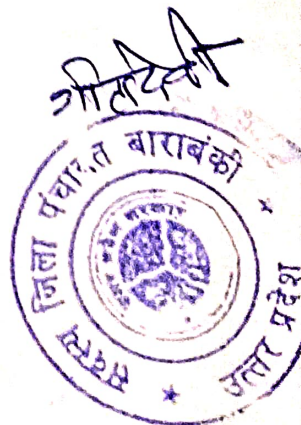 गीता देवी
सदस्य जिला पंचायत बाराबंकी
उत्तर प्रदेश
उत्तर प्रदेश सरकार